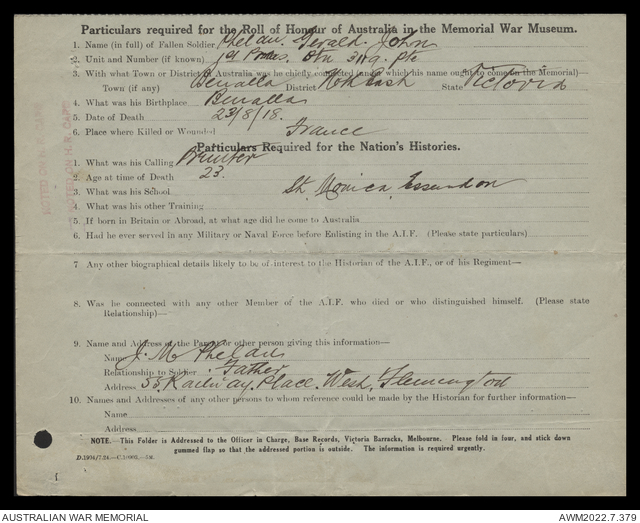 Particulars required for the Roll of Honour of Australia in the Memorial War Museum.
1. Name (in full) of Fallen Soldier Phelan. Gerald. John
2. Unit and Number (if known) Btn 3119. Pte
3. With what Town or District of Australia was he chiefly connected (under which his name ought to come on the Memorial)—
Town (if any) Benalla District State Victoria
4. What was his Birthplace Benalla
5. Date of Death 23/8/18.
6. Place where Killed or Wounded France
Particulars Required for the Nation's Histories.
1. What was his Calling Printer
2. Age at time of Death 23.
3. What was his School St. Monica, Essendon
4. What was his other Training
5. If born in Britain or Abroad, at what age did he come to Australia
6. Had he ever served in any Military or Naval Force before Enlisting in the A.I.F. (Please state particulars)
7 Any other biographical details likely to be of interest to the Historian of the A.I.F., or of his Regiment—
8. Was he connected with any other Member of the A.I.F. who died or who distinguished himself. (Please state
Relationship)—
9. Name and Address of the Parent or other person giving this information—
Name J. M. Phelan
Relationship to Soldier Father
Address 55, Railway Place. West, Flemington
10. Names and Addresses of any other persons to whom reference could be made by the Historian for further information—
Name
Address
NOTE.—This Folder is Addressed to the Officer in Charge, Base Records, Victoria Barracks, Melbourne. Please fold in four, and stick down
gummed flap so that the addressed portion is outside. The information is required urgently.
AUSTRALIAN WAR MEMORIAL
AWM2022.7.379